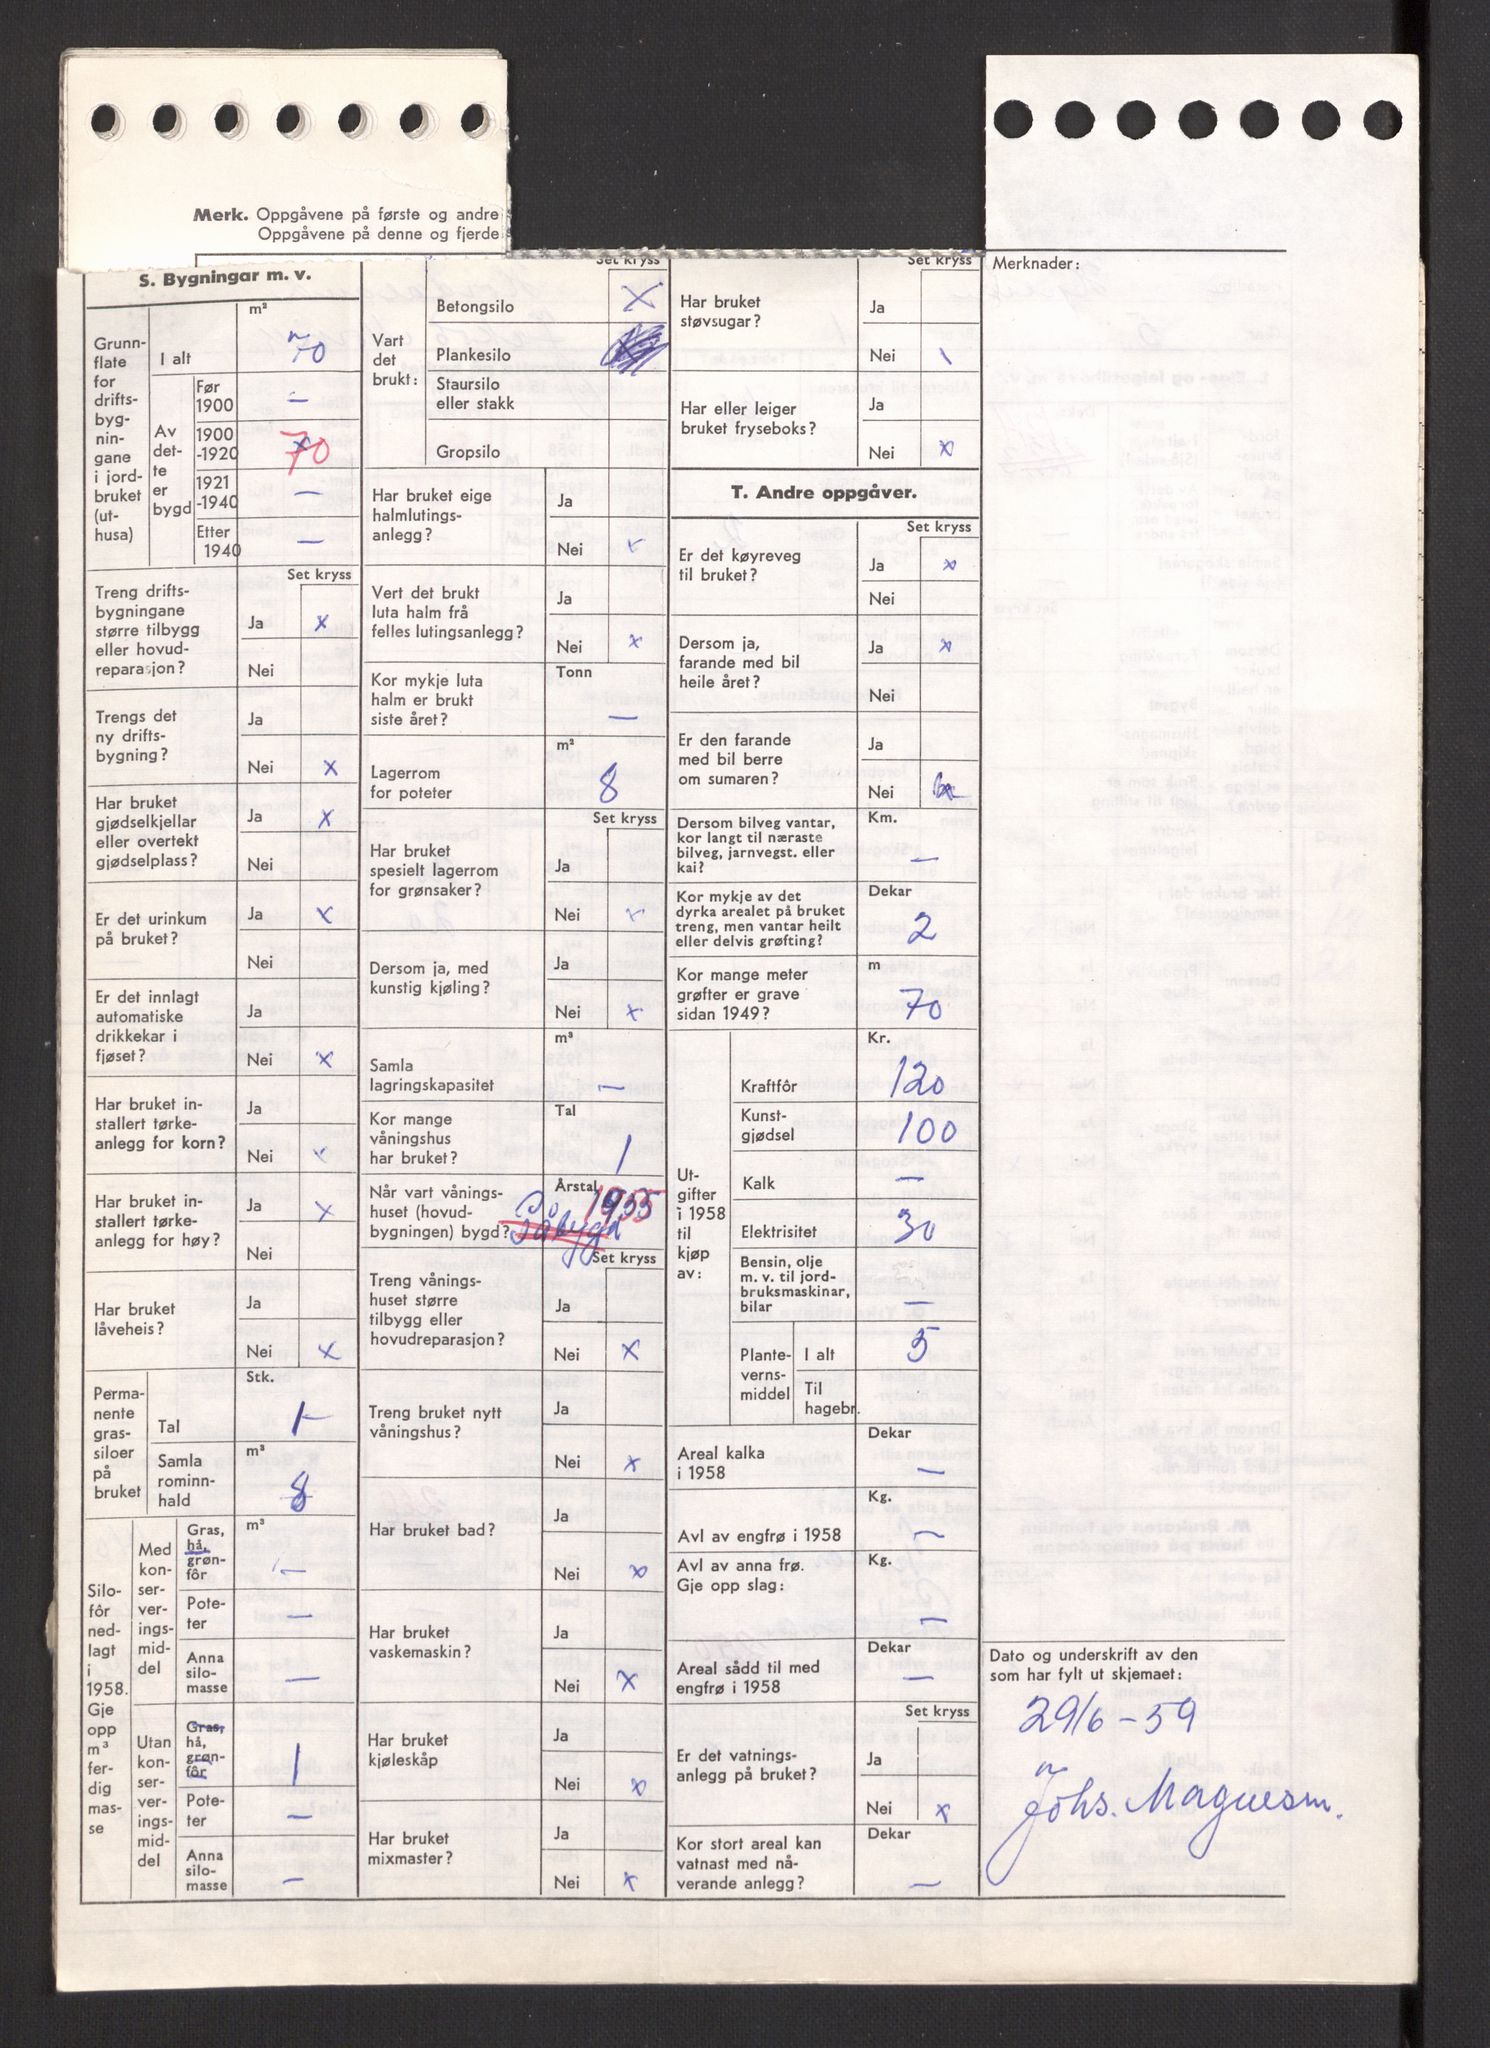 Merk. Oppgåvene på første og andre
Oppgåvene på denne og fjerde
S. Bygningar m. v.
m²
Grunn-
flate
for
drifts-
byg-
nin-
gane
i jord-
bruket
(ut-
husa)
I alt
70
Av
det-
te
er
bygd
Før
1900
—
1900
-1920
x 70
1921
-1940
—
Etter
1940
—
Set kryss
Treng drifts-
bygningane
større tilbygg
eller hovud-
reparasjon?
Ja x
Nei
Trengs det
ny drifts-
bygning?
Ja
Nei x
Har bruket
gjødselkjellar
eller overtekt
gjødselplass?
Ja x
Nei
Er det urinkum
på bruket?
Ja x
Nei
Er det innlagt
automatiske
drikkekar i
fjøset?
Ja
Nei x
Har bruket in-
stallert tørke-
anlegg for korn?
Ja
Nei x
Har bruket in-
stallert tørke-
anlegg for høy?
Ja x
Nei
Har bruket
låveheis?
Ja
Nei x
Perma-
nente
gras-
siloer
på
bruket
Stk.
Tal
1
Samla
rominn-
hald
m³
8
Silo-
fôr
ned-
lagt
i
1958.
Gje
opp
m³
fer-
dig
mas-
se
Med
kon-
ser-
ver-
ings-
mid-
del
m³
Gras,
hå,
grøn-
fôr
—
Pote-
ter
—
Anna
silo-
masse
—
Utan
kon-
ser-
ver-
ings-
mid-
del
Gras,
hå,
grøn-
fôr
1
Pote-
ter
—
Anna
silo-
masse
—
Set kryss
Vart
det
brukt:
Betongsilo X
Plankesilo
Staursilo
eller stakk
Gropsilo
Har bruket eige
halmlutings-
anlegg?
Ja
Nei x
Vert det brukt
luta halm frå
felles lutingsanlegg?
Ja
Nei x
Kor mykje luta
halm er brukt
siste året?
Tonn
—
Lagerrom
for poteter
m²
8
Set kryss
Har bruket
spesielt lagerrom
for grønsaker?
Ja
Nei x
Dersom ja, med
kunstig kjøling?
Ja
Nei x
Samla
lagringskapasitet
m³
—
Kor mange
våningshus
har bruket?
Tal
1
Når vart vånings-
huset (hovud-
bygningen) bygd?
Årstal
1955
Set kryss
Treng vånings-
huset større
tilbygg eller
hovudreparasjon?
Ja
Nei x
Treng bruket nytt
våningshus?
Ja
Nei x
Har bruket bad?
Ja
Nei x
Har bruket
vaskemaskin?
Ja
Nei x
Har bruket
kjøleskåp
Ja
Nei x
Har bruket
mixmaster?
Ja
Nei x
Set kryss
Har bruket
støvsugar?
Ja
Nei \
Har eller leiger
bruket fryseboks?
Ja
Nei x
T. Andre oppgåver.
Set kryss
Er det køyreveg
til bruket?
Ja x
Nei
Dersom ja,
farande med bil
heile året?
Ja x
Nei
Er den farande
med bil berre
om sumaren?
Ja
Nei x
Dersom bilveg vantar,
kor langt til næraste
bilveg, jarnvegst. eller
kai?
Km.
—
Kor mykje av det
dyrka arealet på bruket
treng, men vantar heilt
eller delvis grøfting?
Dekar
2
Kor mange meter
grøfter er grave
sidan 1949?
m
70
Ut-
gifter
i 1958
til
kjøp
av:
Kr.
Kraftfôr
120
Kunst-
gjødsel
100
Kalk
—
Elektrisitet
30
Bensin, olje
m. v. til jord-
bruksmaskinar,
bilar
—
Plante-
verns-
middel
I alt
5
Til
hagebr.
Areal kalka
i 1958
Dekar
—
Avl av engfrø i 1958
Kg.
—
Avl av anna frø.
Gje opp slag:
Kg.
—
Areal sådd til med
engfrø i 1958
Dekar
—
Set kryss
Er det vatnings-
anlegg på bruket?
Ja
Nei x
Kor stort areal kan
vatnast med nå-
verande anlegg?
Dekar
—
Merknader:
Dato og underskrift av den
som har fylt ut skjemaet:
29/6-59
Johs. Magnesm.